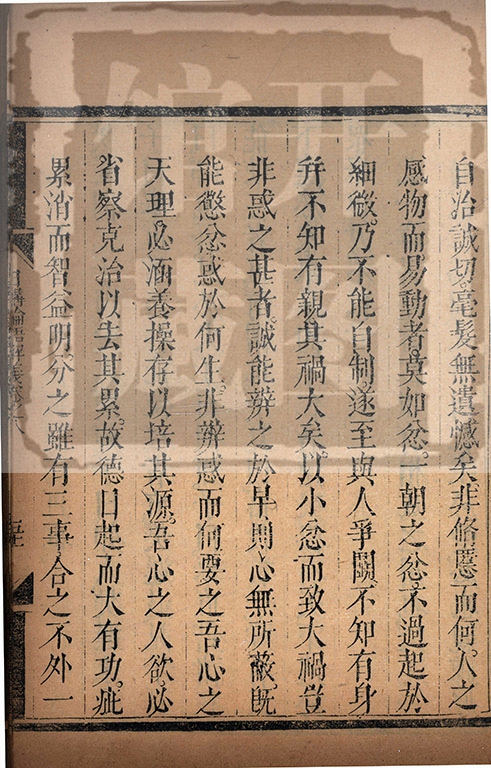 自治誠切。毫髮無遺憾矣。非脩慝而何。人之
感物而易動者。莫如忿。一朝之忿。不過起於
細微。乃不能自制。遂至與人爭鬬。不知有身
并不知有親。其禍大矣。以小忿而致大禍。豈
非惑之甚者。誠能辨之於早。則心無所蔽。既
能懲忿。惑於何生。非辨惑而何。要之吾心之
天理。必涵養操存以培其源。吾心之人欲。必
省察克治以去其累。故德日起而大有功。疵
累消而智益明。分之雖有三事。合之不外一